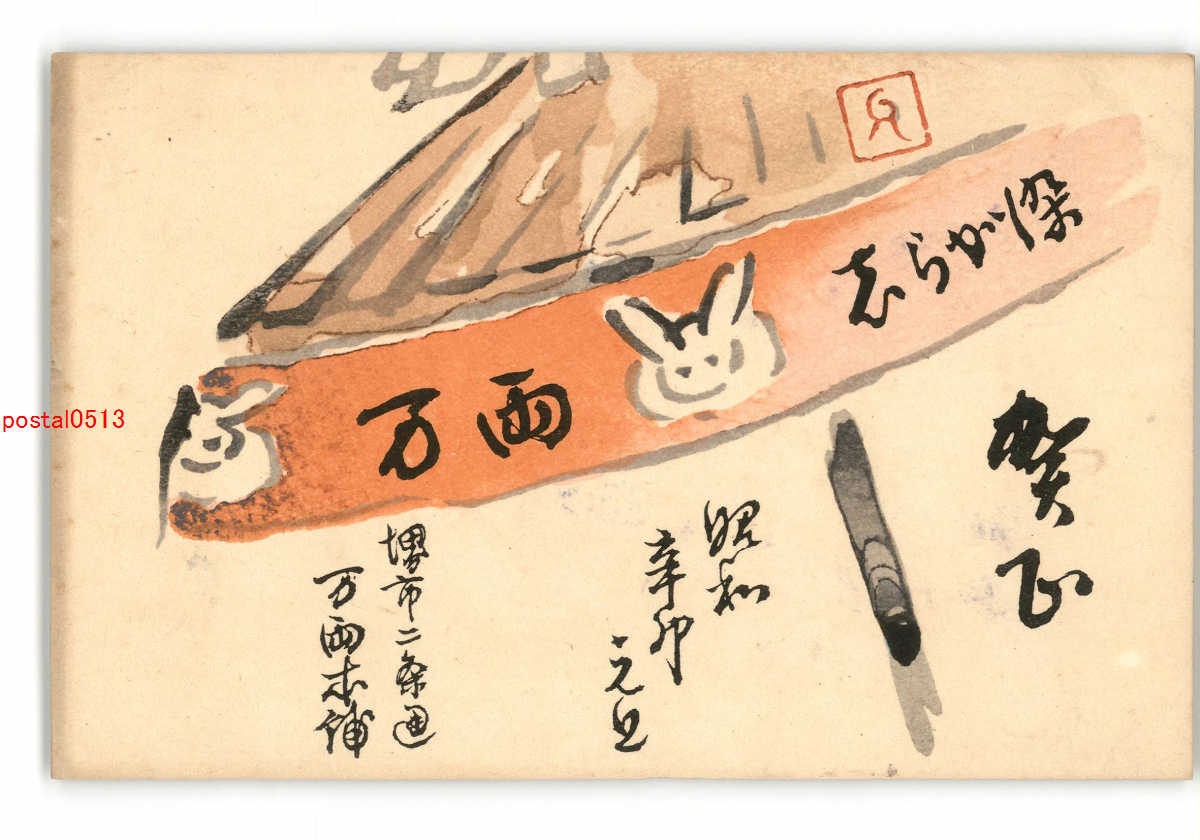 万両 志らが染
賀正
昭和
辛卯
元旦
堺市二条通
万両本舗
postal0513